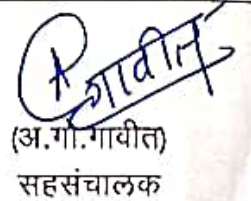 गावीत
(अ.गो.गावीत)
सहसंचालक